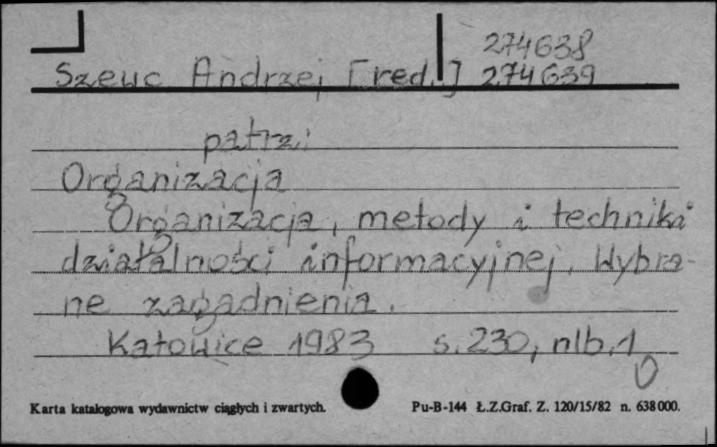 274638
Szewc Andrzej [red.] 274639
patrz:
Organizacja
Organizacja, metody i techniki
działalności informacyjnej. Wybra-
ne zagadnienia.
Katowice 1983 s. 230, nlb. 1
Karta katalogowa wydawnictw ciągłych i zwartych. Pu-B-144 Ł.Z.Graf. Z. 120/15/82 n. 638000.